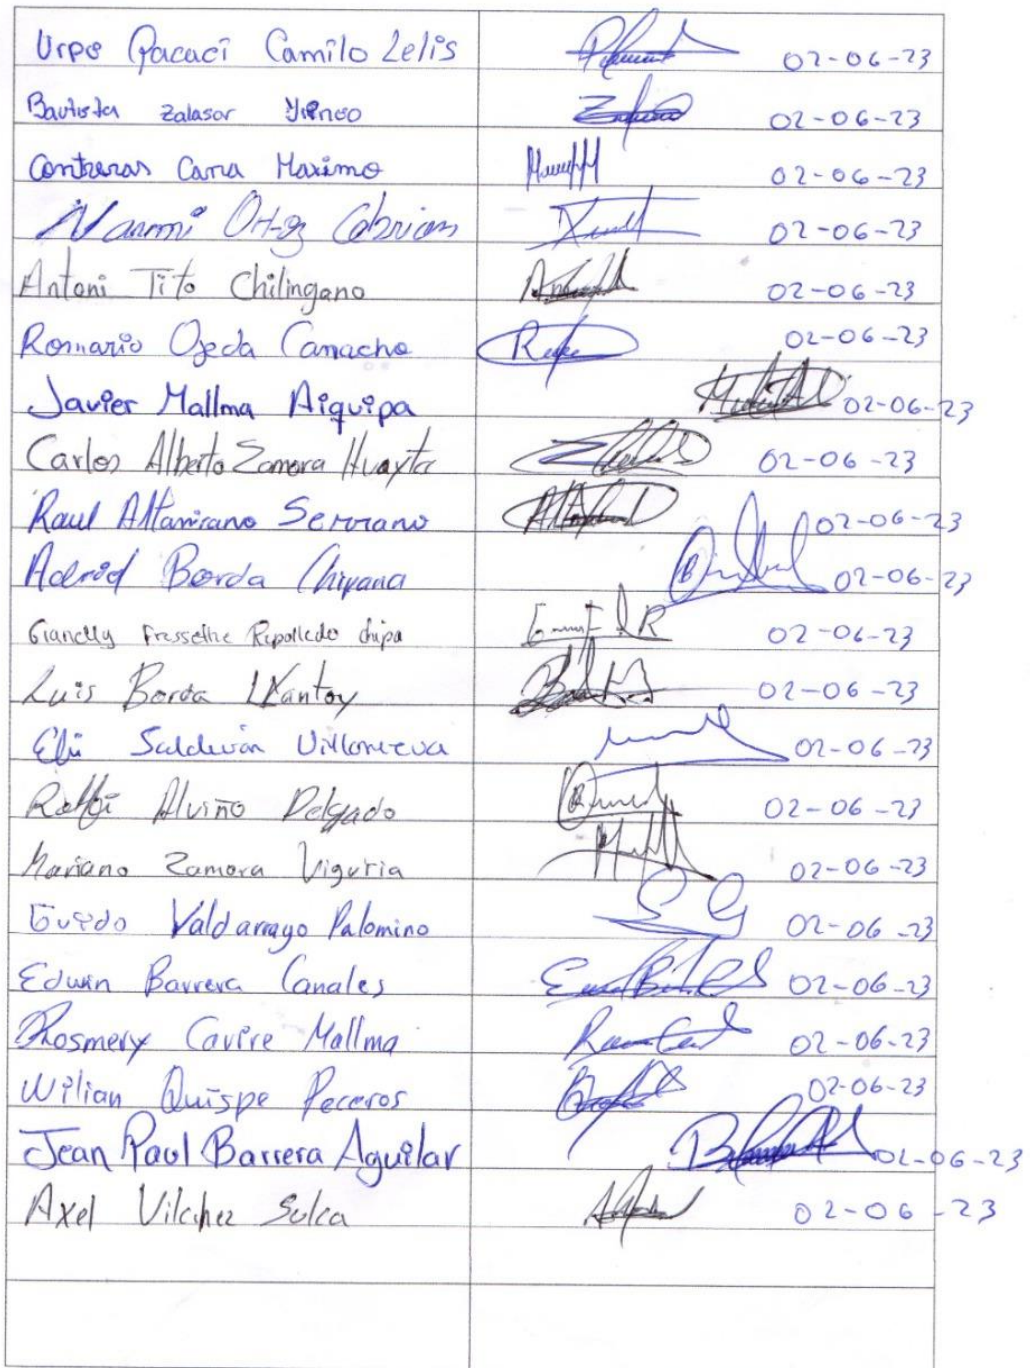 Urpe Qacaci Camilo Lelis 02-06-23
Bautista Zalasar 02-06-23
Contreras Cana Maximo 02-06-23
Ortiz 02-06-23
Antoni Tito Chilingano 02-06-23
Romario Ojeda Camacho 02-06-23
Javier Mallma Aiquipa 02-06-23
Carlos Alberto Zamora Huayta 02-06-23
Raul Altamirano Serrano 02-06-23
Borda Chipana 02-06-23
Fressethe Repolledo chipa 02-06-23
Luis Borda LKantoy 02-06-23
Saldivan Villonueva 02-06-23
Alviño Delgado 02-06-23
Mariano Zamora Viguria 02-06-23
Guido Valdarrago Palomino 02-06-23
Edwin Barrera Canales 02-06-23
Rosmery Cavire Mallma 02-06-23
Wilian Quispe Peceros 02-06-23
Jean Paul Barrera Aguilar 02-06-23
Axel Vilchez Sulca 02-06-23